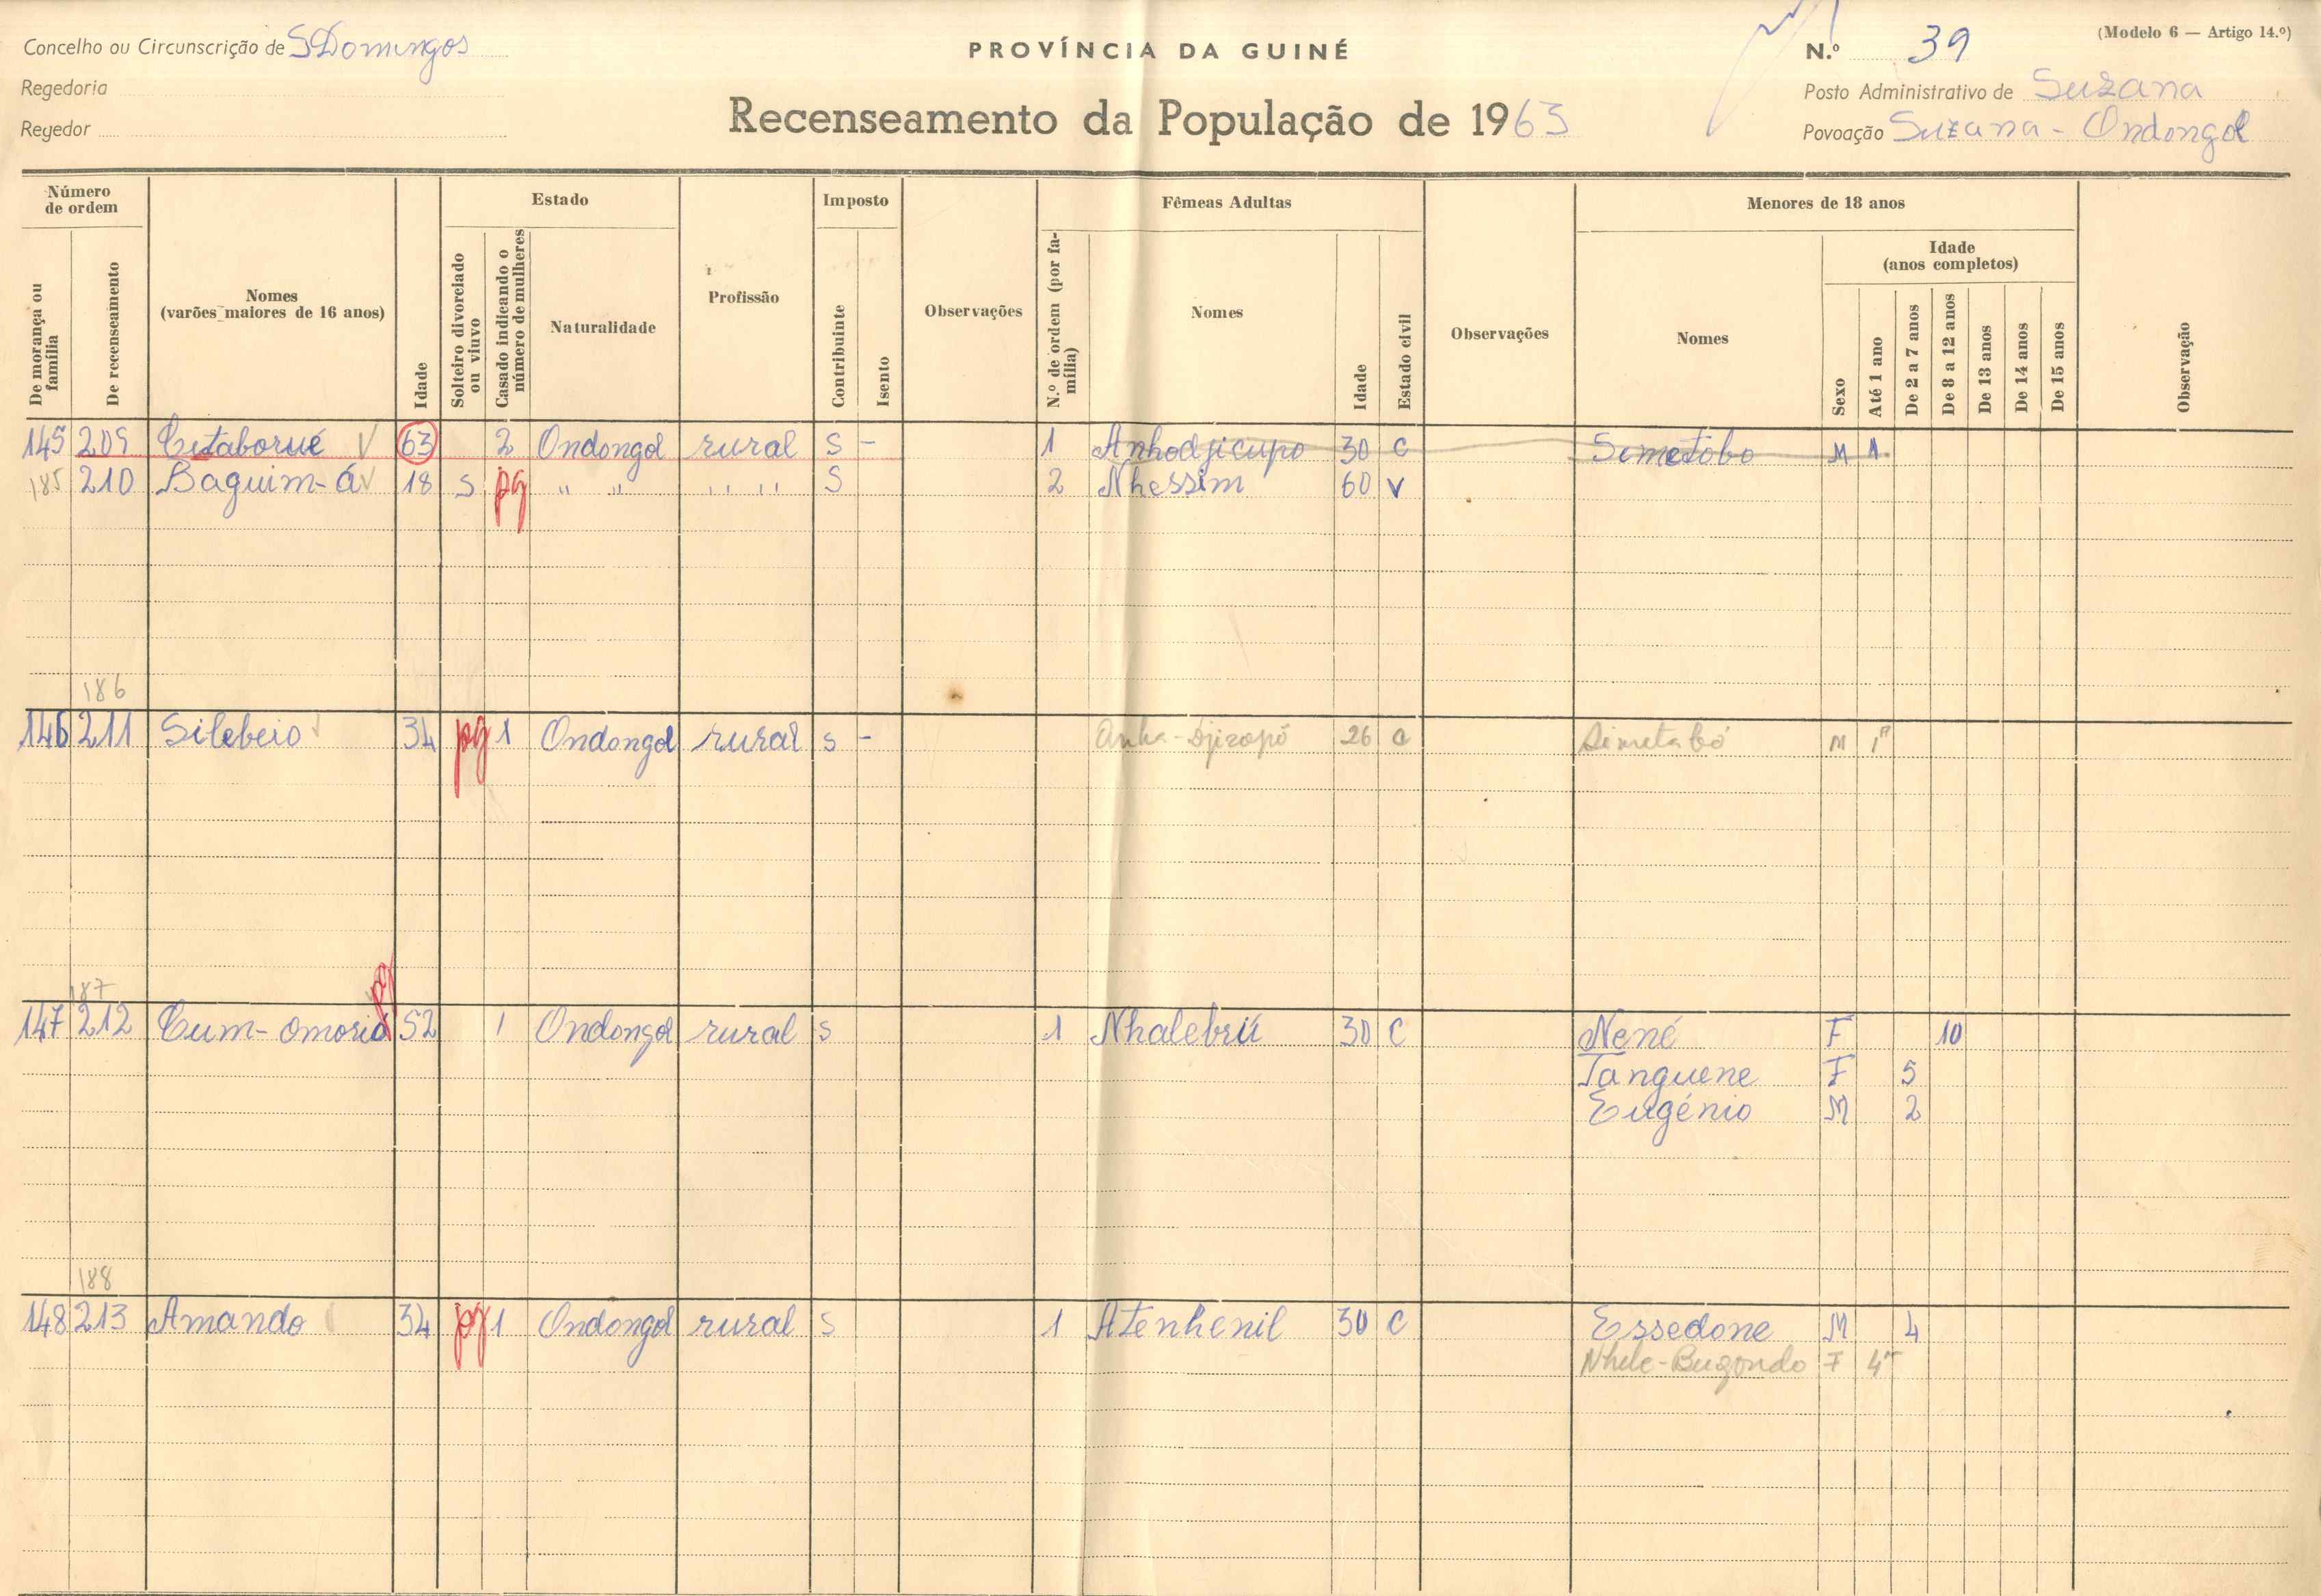 Concelho ou Circunscrição de S Domingos
PROVÍNCIA DA GUINÉ
N.º 39
(Modelo 6 — Artigo 14.º)
Regedoria
Recenseamento da População de 1963
Posto Administrativo de Suzana
Regedor
Povoação Suzana - Ondongol
Número de ordem
Estado
Imposto
Fêmeas Adultas
Menores de 18 anos
De morança ou família
De recenseamento
Nomes (varões maiores de 16 anos)
Idade
Solteiro divorciado ou viuvo
Casado indicando o número de mulheres
Naturalidade
Profissão
Contribuinte
Isento
Observações
N.º de ordem (por família)
Nomes
Idade
Estado civil
Observações
Nomes
Sexo
Idade (anos completos)
Até 1 ano
De 2 a 7 anos
De 8 a 12 anos
De 13 anos
De 14 anos
De 15 anos
Observação
145 209 63 2 Ondongol rural S - 1 Anhodjicupo 30 C Simetobo M 1
185 210 Baguim-á 18 S pg " " " " S 2 Nhessim 60 V
186
146 211 Silebeio 34 pg 1 Ondongol rural S - 26 C M
187 pg
147 212 Cum-omoriá 52 1 Ondongol rural S 1 Nhalebrú 30 C Nené F 10
Tanguene F 5
Eugénio M 2
188
148 213 Amando 34 pg 1 Ondongol rural S 1 Atenhenil 30 C Essedone M 4
Nhele-Bugondo F 4